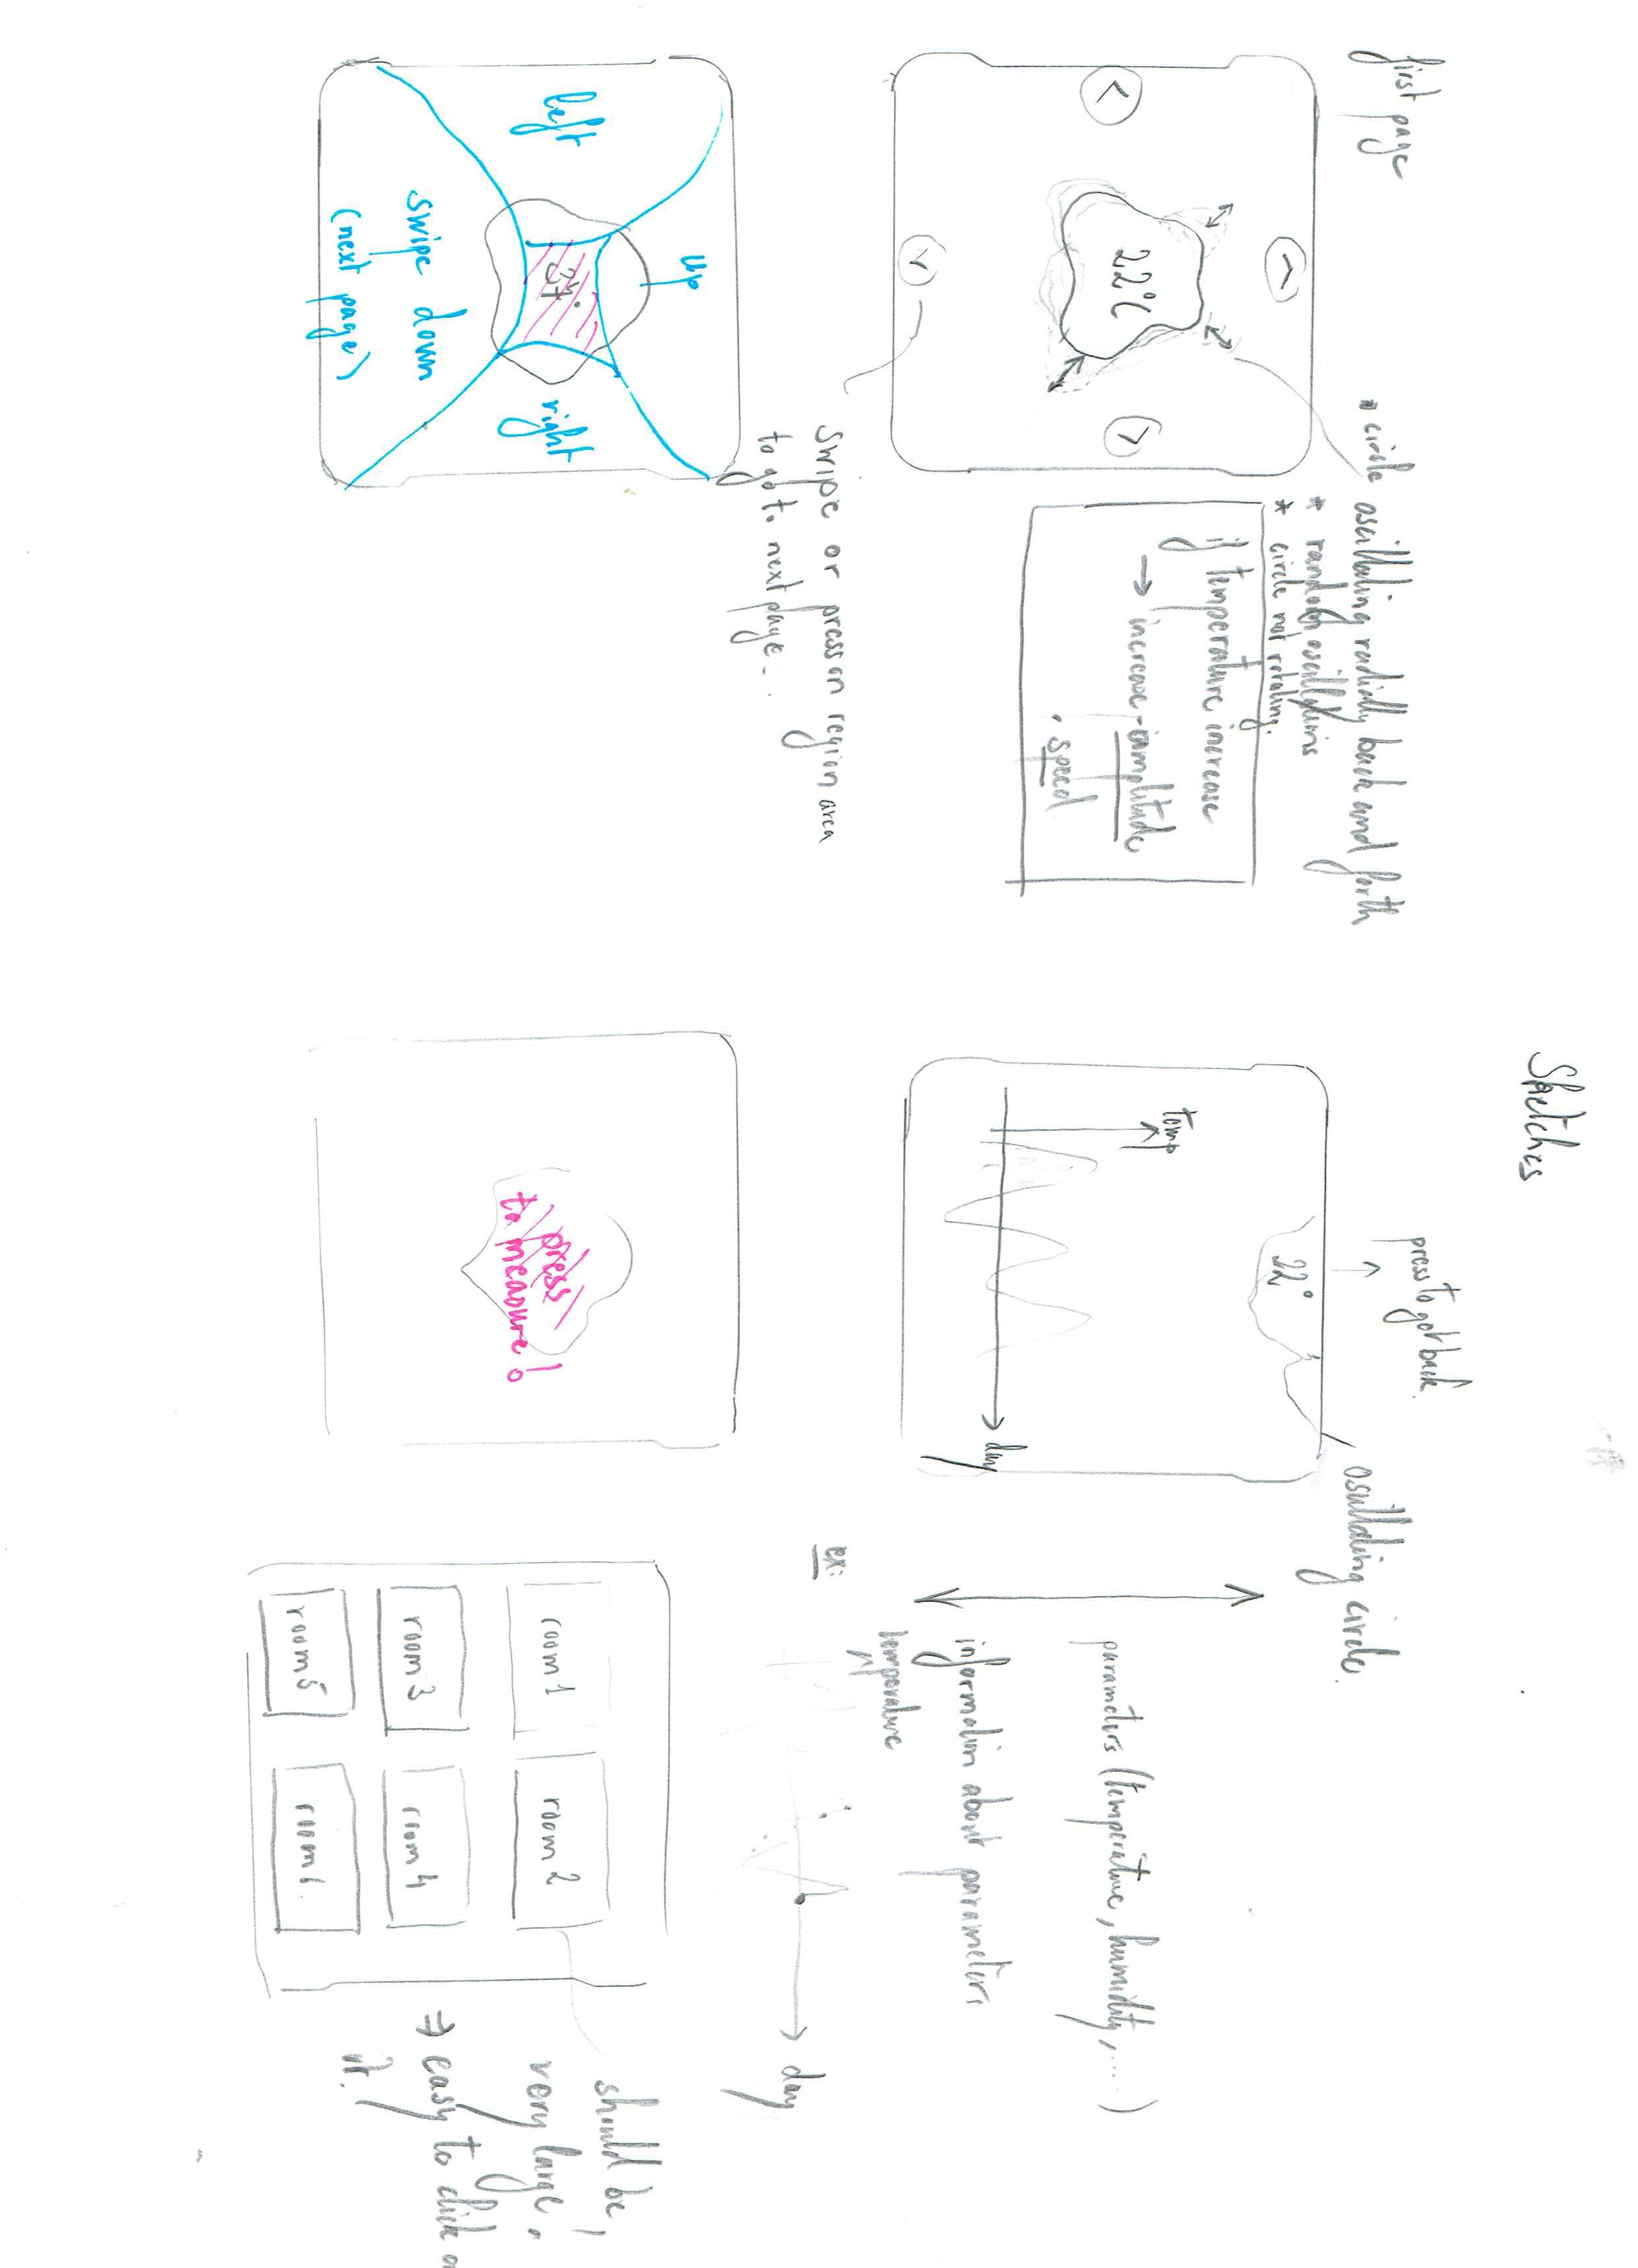 Sketches
first page
* circle oscillating radially back and forth
* random oscillations
* circle not rotating.
22°C
if temperature increase
→ increase - amplitude
• speed
Swipe or press on region area
to go to next page...
left
up
37°
right
swipe down
(next page)
press to go back.
22°
temp
day
oscillating circle.
parameters (temperature, humidity, .....)
information about parameters
ex:
temperature
day
press
to measure!
room 1
room 2
room 3
room 4
room 5
room 6
should be
very large!
⇒ easy to click
it!